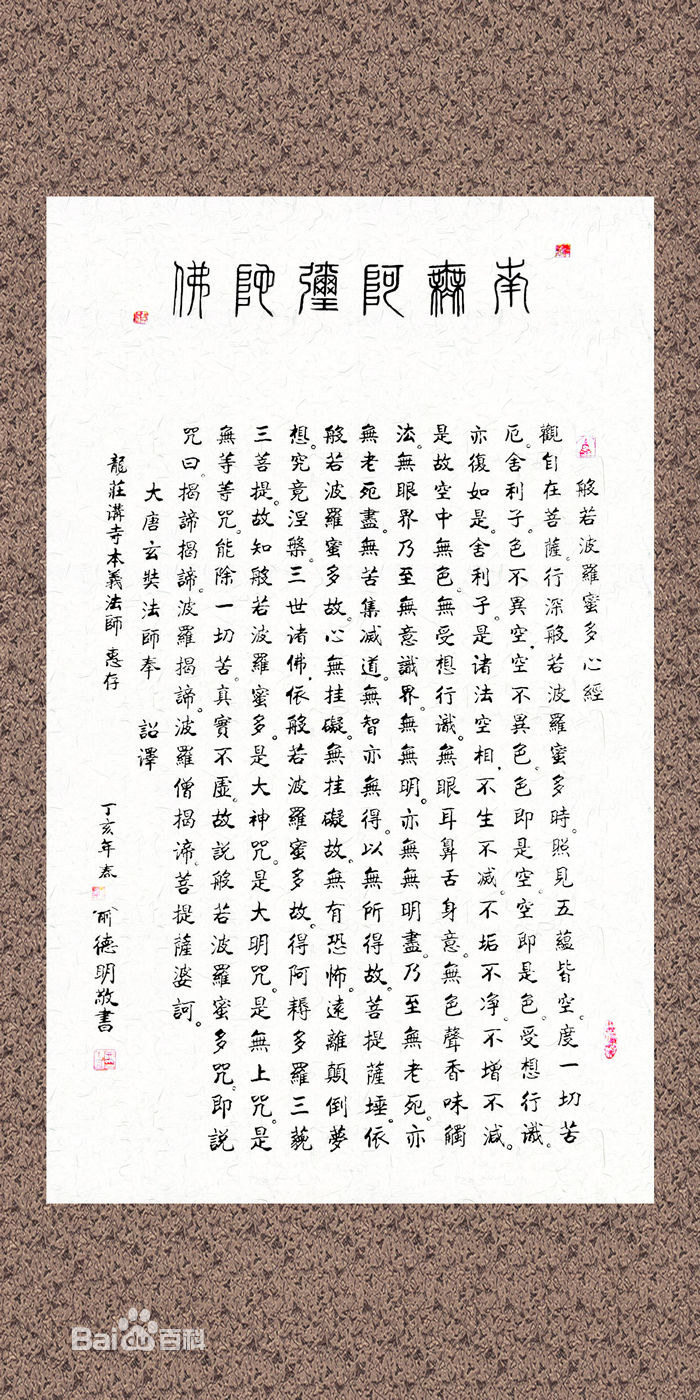 南無阿彌陀佛
般若波羅蜜多心經
觀自在菩薩。行深般若波羅蜜多時。照見五蘊皆空。度一切苦
厄。舍利子。色不異空，空不異色。色即是空。空即是色。受想行識。
亦復如是。舍利子。是諸法空相，不生不滅。不垢不净。不增不減。
是故空中無色。無受想行識。無眼耳鼻舌身意。無色聲香味觸
法。無眼界乃至無意識界。無無明。亦無無明盡。乃至無老死。亦
無老死盡。無苦集滅道。無智亦無得。以無所得故。菩提薩埵。依
般若波羅蜜多故。心無挂礙。無挂礙故。無有恐怖。遠離顛倒夢
想。究竟涅槃。三世諸佛，依般若波羅蜜多故。得阿耨多羅三藐
三菩提。故知般若波羅蜜多。是大神咒。是大明咒。是無上咒。是
無等等咒。能除一切苦。真實不虛。故説般若波羅蜜多咒。即説
咒曰。揭諦揭諦。波羅揭諦。波羅僧揭諦。菩提薩婆訶。
大唐玄奘法師奉 詔澤
龍莊溝寺本義法師 惠存
丁亥年杰 俞德明敬書
Baidu百科